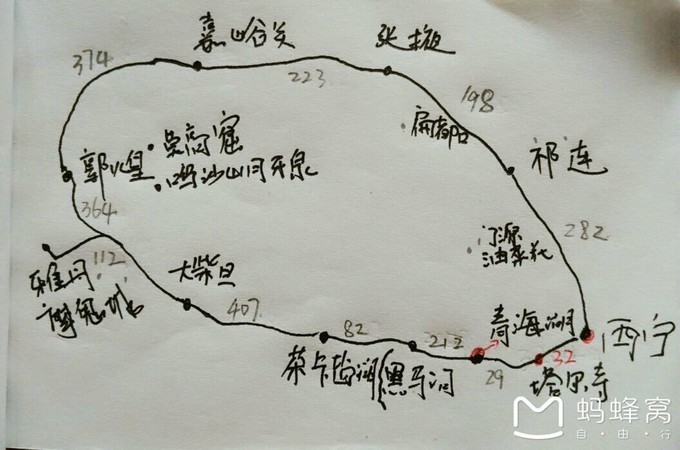 嘉峪关
张掖
374
223
198
扁都口
祁连
郭煌
莫高窟
鸣沙山月牙泉
364
282
门源
油菜花
112
雅丹
魔鬼城
大柴旦
407
82
212
青海湖
西宁
茶卡盐湖
黑马河
29
32
塔尔寺
蚂蜂窝
自·由·行